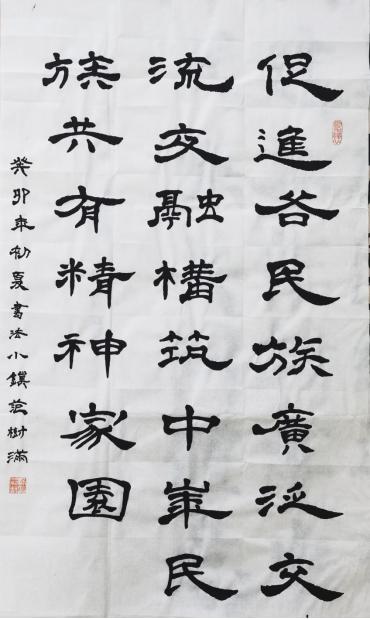 促進各民族廣泛交
流交融構筑中華民
族共有精神家園
癸卯年初夏書法小鎮范樹滿